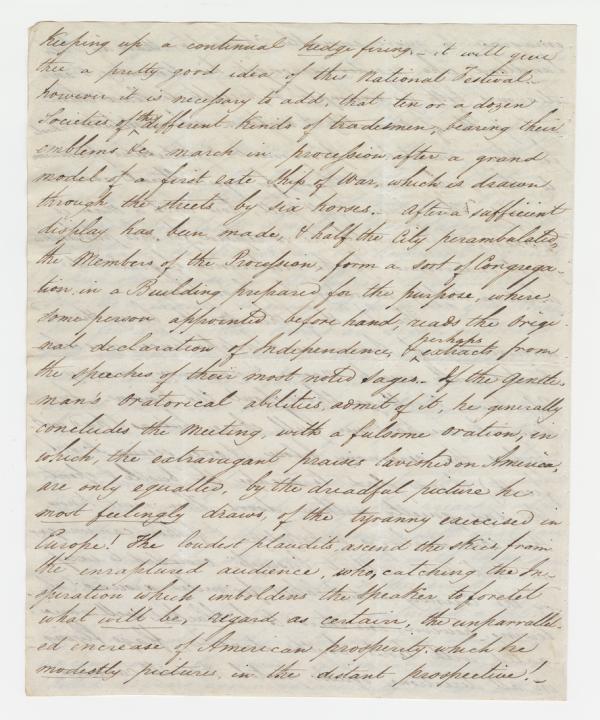 Keeping up a continual hedge firing, – it will give
thee a pretty good idea of this National Festival. –
However it is necessary to add, that ten or a dozen
Societies of the different kinds of tradesmen, bearing their
emblems &c, march in procession, after a grand
model of a first rate Ship of War, which is drawn
through the streets by six horses. – After a sufficient
display has been made, & half the City perambulated,
the Members of the Procession, form a sort of Congrega-
tion, in a Building prepared for the purpose, where,
some person appointed before hand, reads the Origi-
nal declaration of Independence, & perhaps extracts from
the speeches of their most noted Sages. – If the Gentle-
man's Oratorical abilities, admit of it, he generally
concludes the Meeting, with a fulsome Oration, in
which, the extravagant praises lavished on America,
are only equalled, by the dreadful picture he
most feelingly draws, of the tyranny exercised in
Europe! The loudest plaudits, ascend the skies, from
the enraptured audience, who, catching the In-
spiration which imboldens the Speaker to foretel
what will be, regard as certain, the unparralel-
ed increase of American prosperity, which he
modestly pictures, in the distant prospective! –